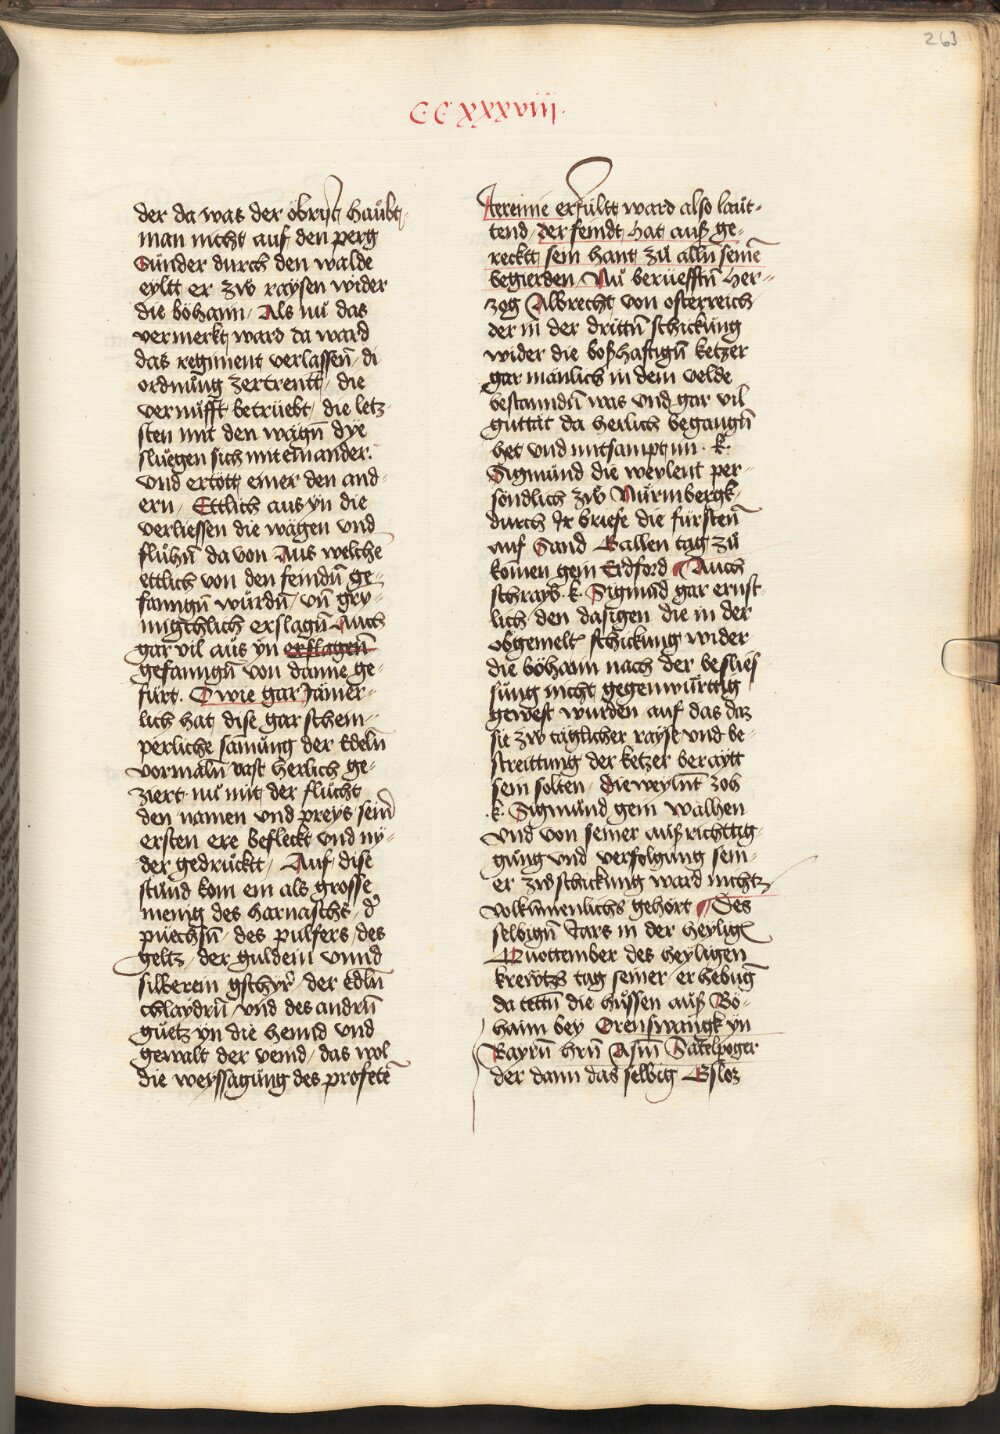 263
CCXXXviij.
der da was der öbrist haubt-
man nicht auf den perg
Sunder durch den walde
eyltt er zw raysen wider
die böhann / Als nu das
vermerkt ward da ward
das regiment verlassen̄ / di
ordnung zertrentt / die
vernufft betrüebt / die letz
sten mit den wägn̄ dye
sluegen sich miteinander.
und ertött einer den and-
ern / Ettlich aus yn die
verliessen die wägen und
fluhn̄ da von Aus welche
ettlich von den feindn̄ ge-
fanngn̄ wurdn̄ / vn̄ gry-
migchlich erslagn̄ Auch
gar vil aus yn erslagen̄
gefanngn̄ von danne ge-
fürt. O wie gar Jämer-
lich hat dise gar schein-
perliche samung der Edeln̄
vormaln̄ vast herlich ge-
ziert nu mit der flucht
den namen und preys sein̄
ersten ere befleckt und ny-
der gedrücktt / Auf dise
stund kom ein als grosse
menig des harnaschs / d͛
püechsn̄ / des pulfers / des
geltz / der guldein unnd
silberein gschyr͛ / der Edln̄
chlaydrn̄ / und des andrn̄
guetz yn die hennd und
gewalt der veind / das wol
die weyssagung des profetē
Jeremie erfültt ward also laut-
tend / der feindt hat auß ge-
recktt sein hant zu alln̄ seinē
begierden / Nu berüefftn̄ her-
zog Albrecht von osterreich
der in der drittn̄ schickung
wider die boßhaftign̄ ketzer
gar mänlich in dem velde
bestanndn̄ was und gar vil
guttät da herlich begangn̄
het und mitsampt im . k.
Sigmund die weylent per-
söndlich zw Nürmbergk
durch Ir briefe die fürsten̄
auf Sand Gallen tag zu
komen gein Erdford Auch
schrayb . k. Sigmund gar ernst-
lich den dasigen die in der
obgemelt̄ schickung wider
die böhann nach der beslies
sung nicht gegenwürttig
gewest wurden auf das daz
sie zw täglicher rayse und be-
streittung der ketzer beraytt
sein solten / dieweylnt zoh
.k. Sigmund gein walhen
und von seiner außrichttig-
gung und verfolgung sein-
er zwschickung ward nichtz
volkumenlichs gehört Des
selbign̄ Jars in der heylign̄
Quottember des heyligen
krewtz tag seiner erhebuḡ
da tettn̄ die hussen auß Bö-
haim bey Trenswangk yn
Bayrn̄ hrn̄ Asm̄ Satelpoger
der dann das selbig Gsloz